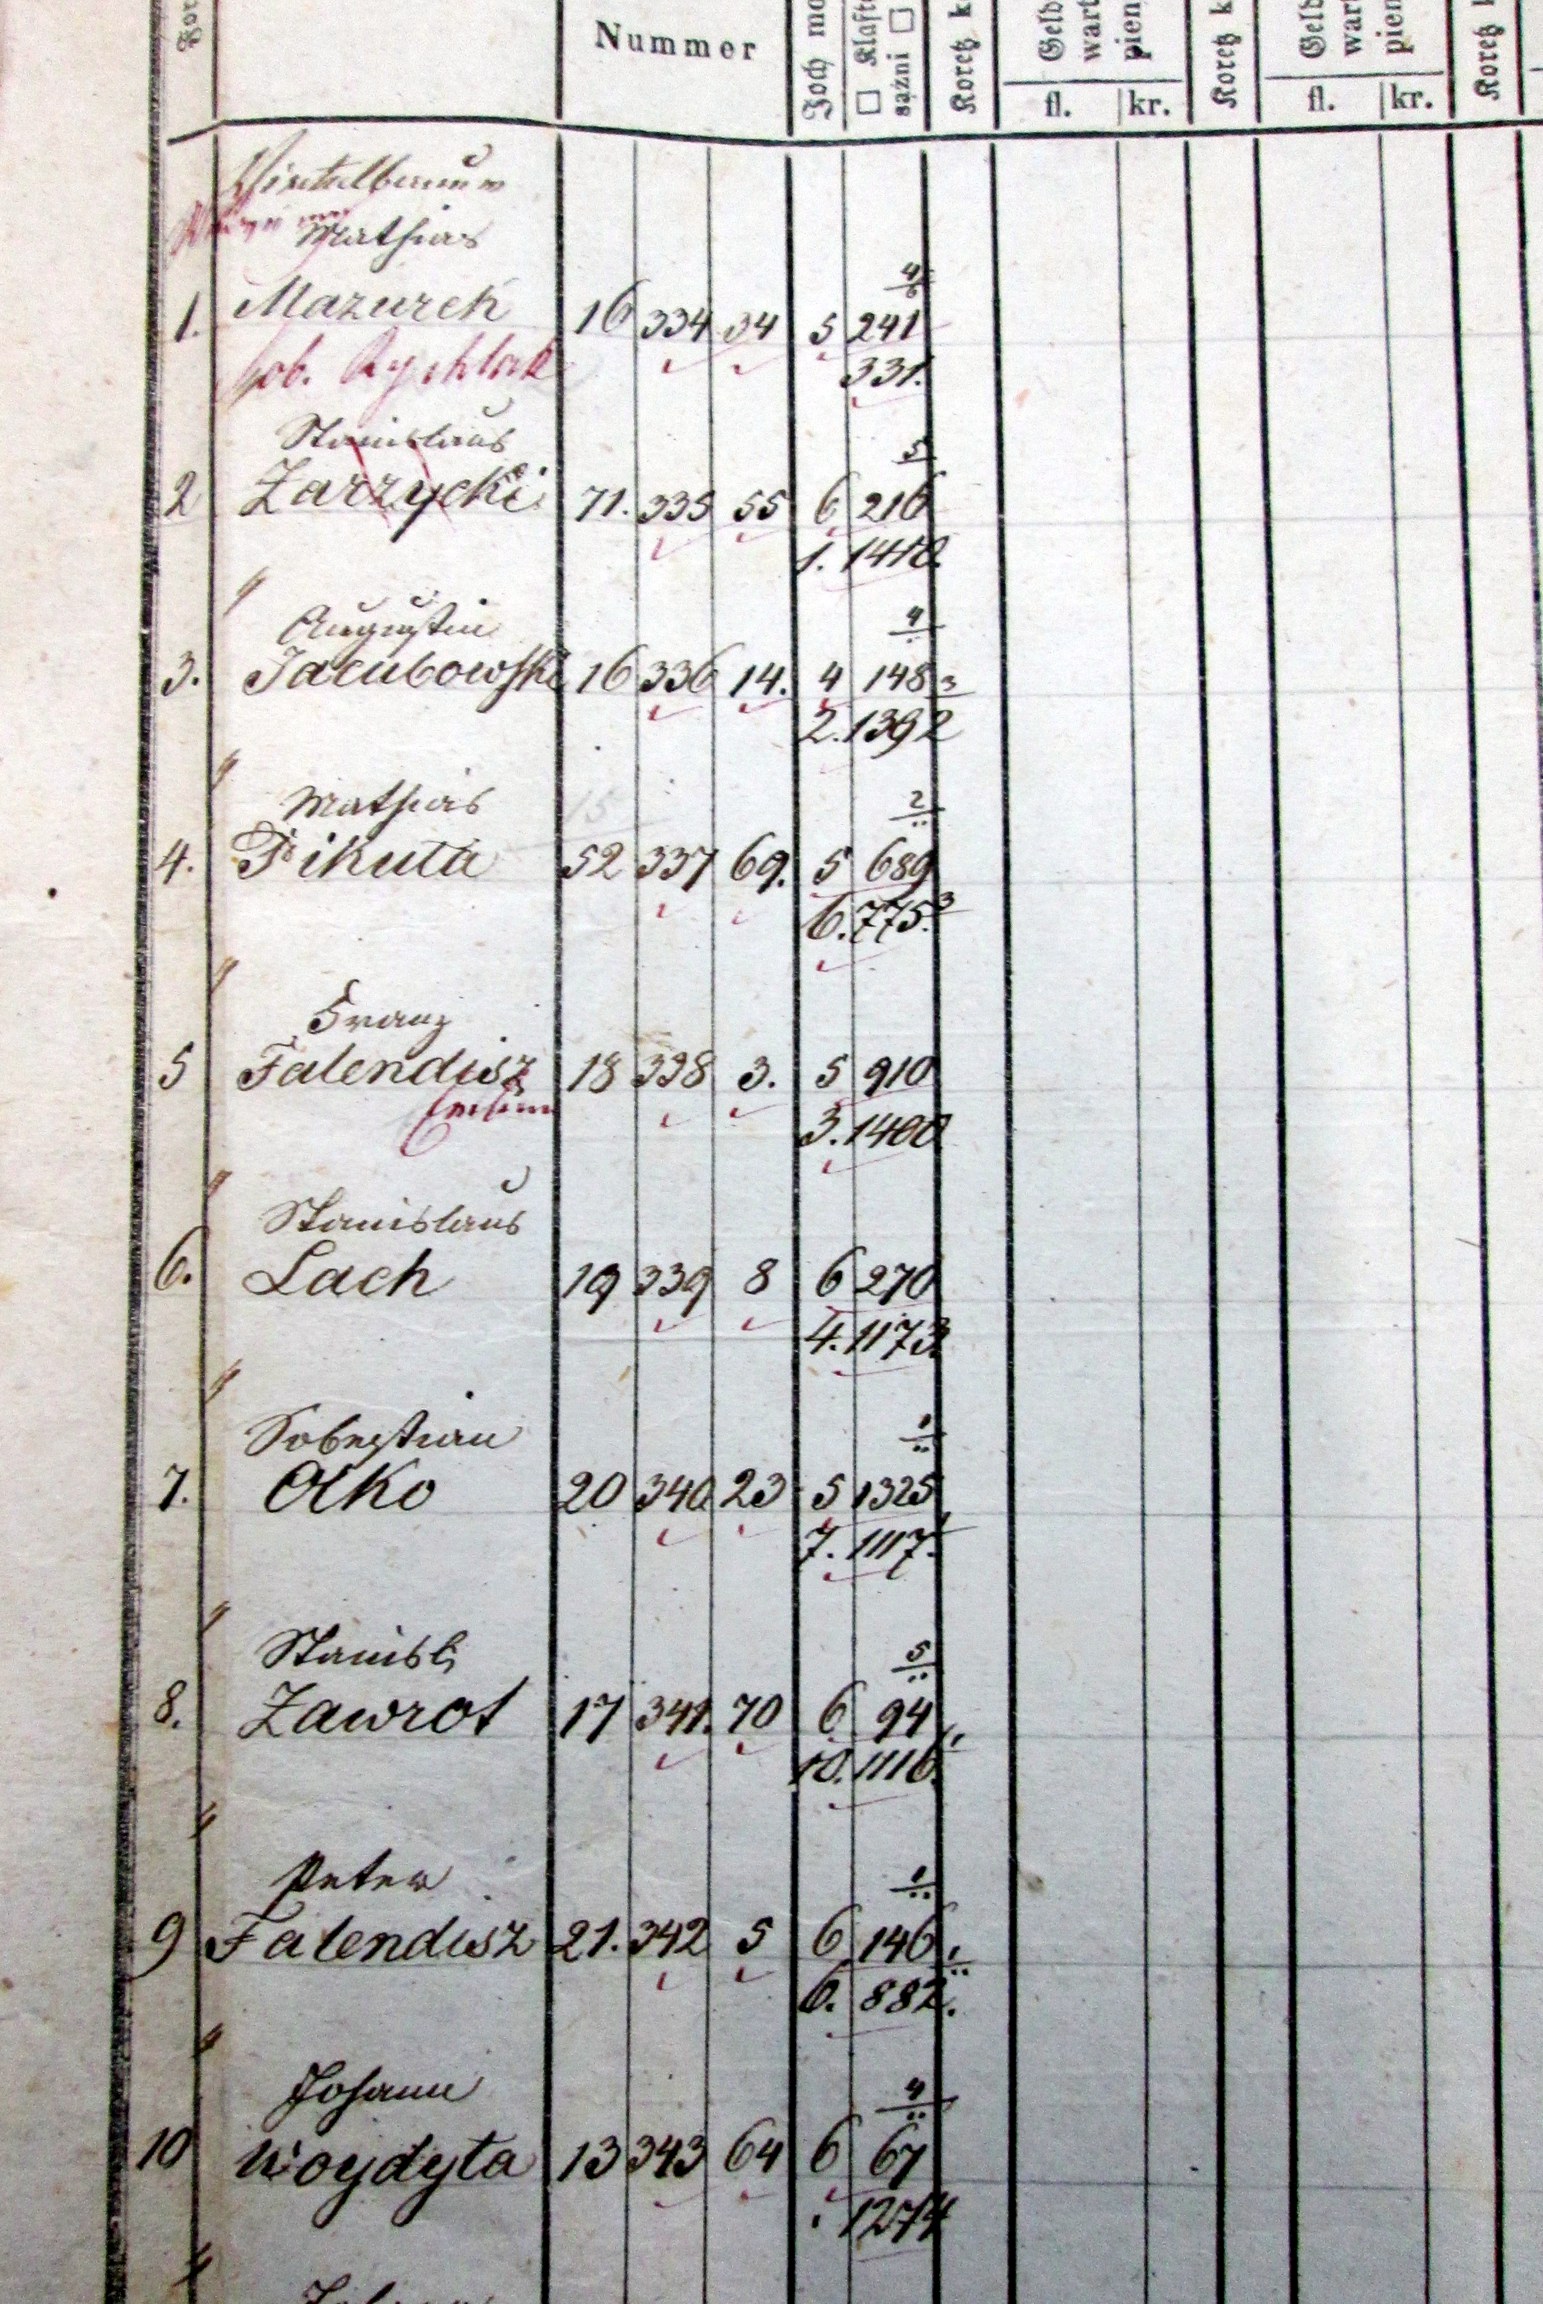 Nummer
Joch mo
□ Klaft
sążni □
Koretz k
Geld
wart
pien
fl. kr.
Koretz k
Geld
wart
pien
fl. kr.
Koretz
Mathias
1. Mazurek 16 334 34 5 241 4/6
Rychlak
331.
Stanislaus 5
2 Zarzycki 71. 335 55 6 216
1. 1410.
" Augustin 4
3. Jacubowski 16 336 14. 4 148 3
2. 1392
" Mathias 2
4. Pikuta 52 337 69. 5 689
6. 775. 3
" Franz
5 Falendisz 18 338 3. 5 910
3. 1400
" Stanislaus
6. Lach 19 339 8 6 270
4. 1173.
" Sebastian 1
7. Olko 20 340 23 5 1325
7. 1117. 1
" Stanisl. 5
8. Zawrot 17 341. 70 6 94
10. 1116. 1
" Peter 1
9 Falendisz 21. 342 5 6 146
6. 882. 1
" Johann 4
10 Woydyta 13 343 64 6 67
. 1274
"